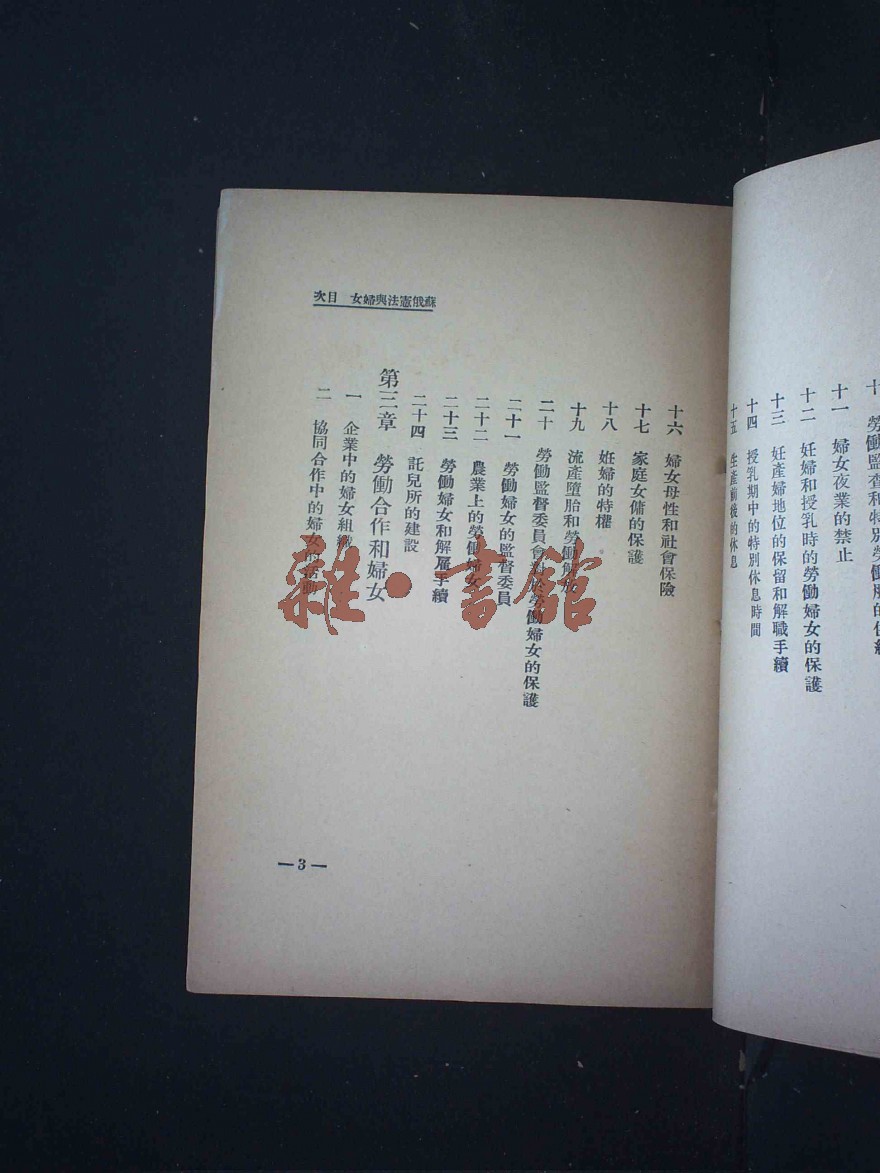 十一 婦女夜業的禁止
十二 妊婦和授乳時的勞働婦女的保護
十三 妊產婦地位的保留和解職手續
十四 授乳期中的特別休息時間
十五 生產前後的休息
蘇俄憲法與婦女 目次
十六 婦女母性和社會保險
十七 家庭女傭的保護
十八 妊婦的特權
十九 流產墮胎和勞働解放
二十 勞働監督委員會對於勞働婦女的保護
二十一 勞働婦女的監督委員
二十二 農業上的勞働婦女
二十三 勞働婦女和解雇手續
二十四 託兒所的建設
第三章 勞働合作和婦女
一 企業中的婦女組織
二 協同合作中的婦女的活動
—3—
雜·書館